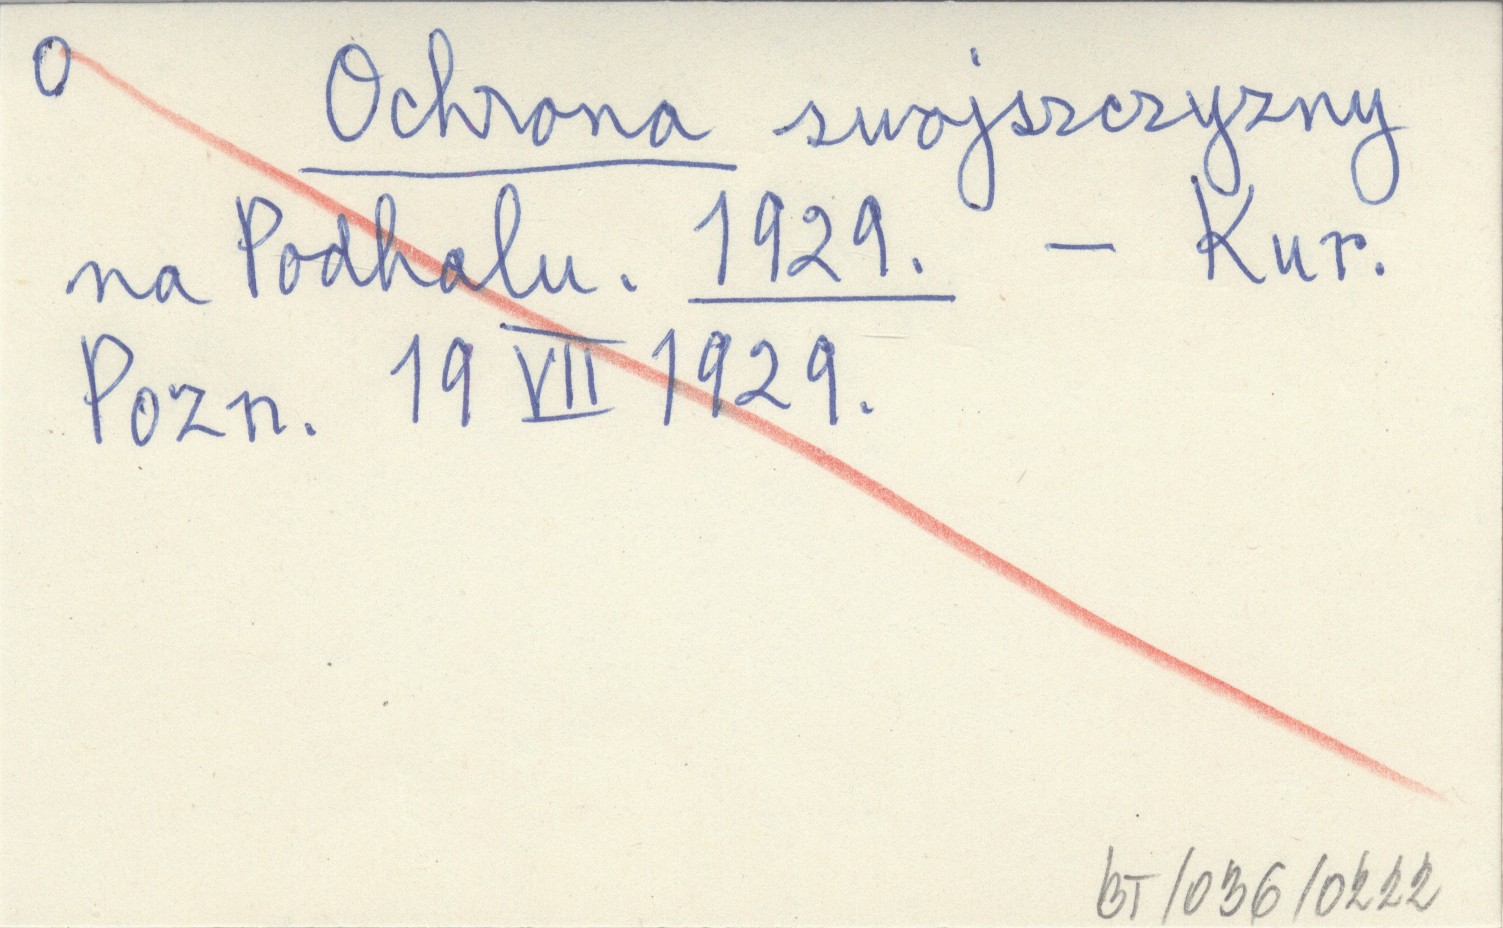 O
Ochrona swojszczyzny
na Podhalu. 1929. — Kur.
Pozn. 19 VII 1929.
BT/036/0222